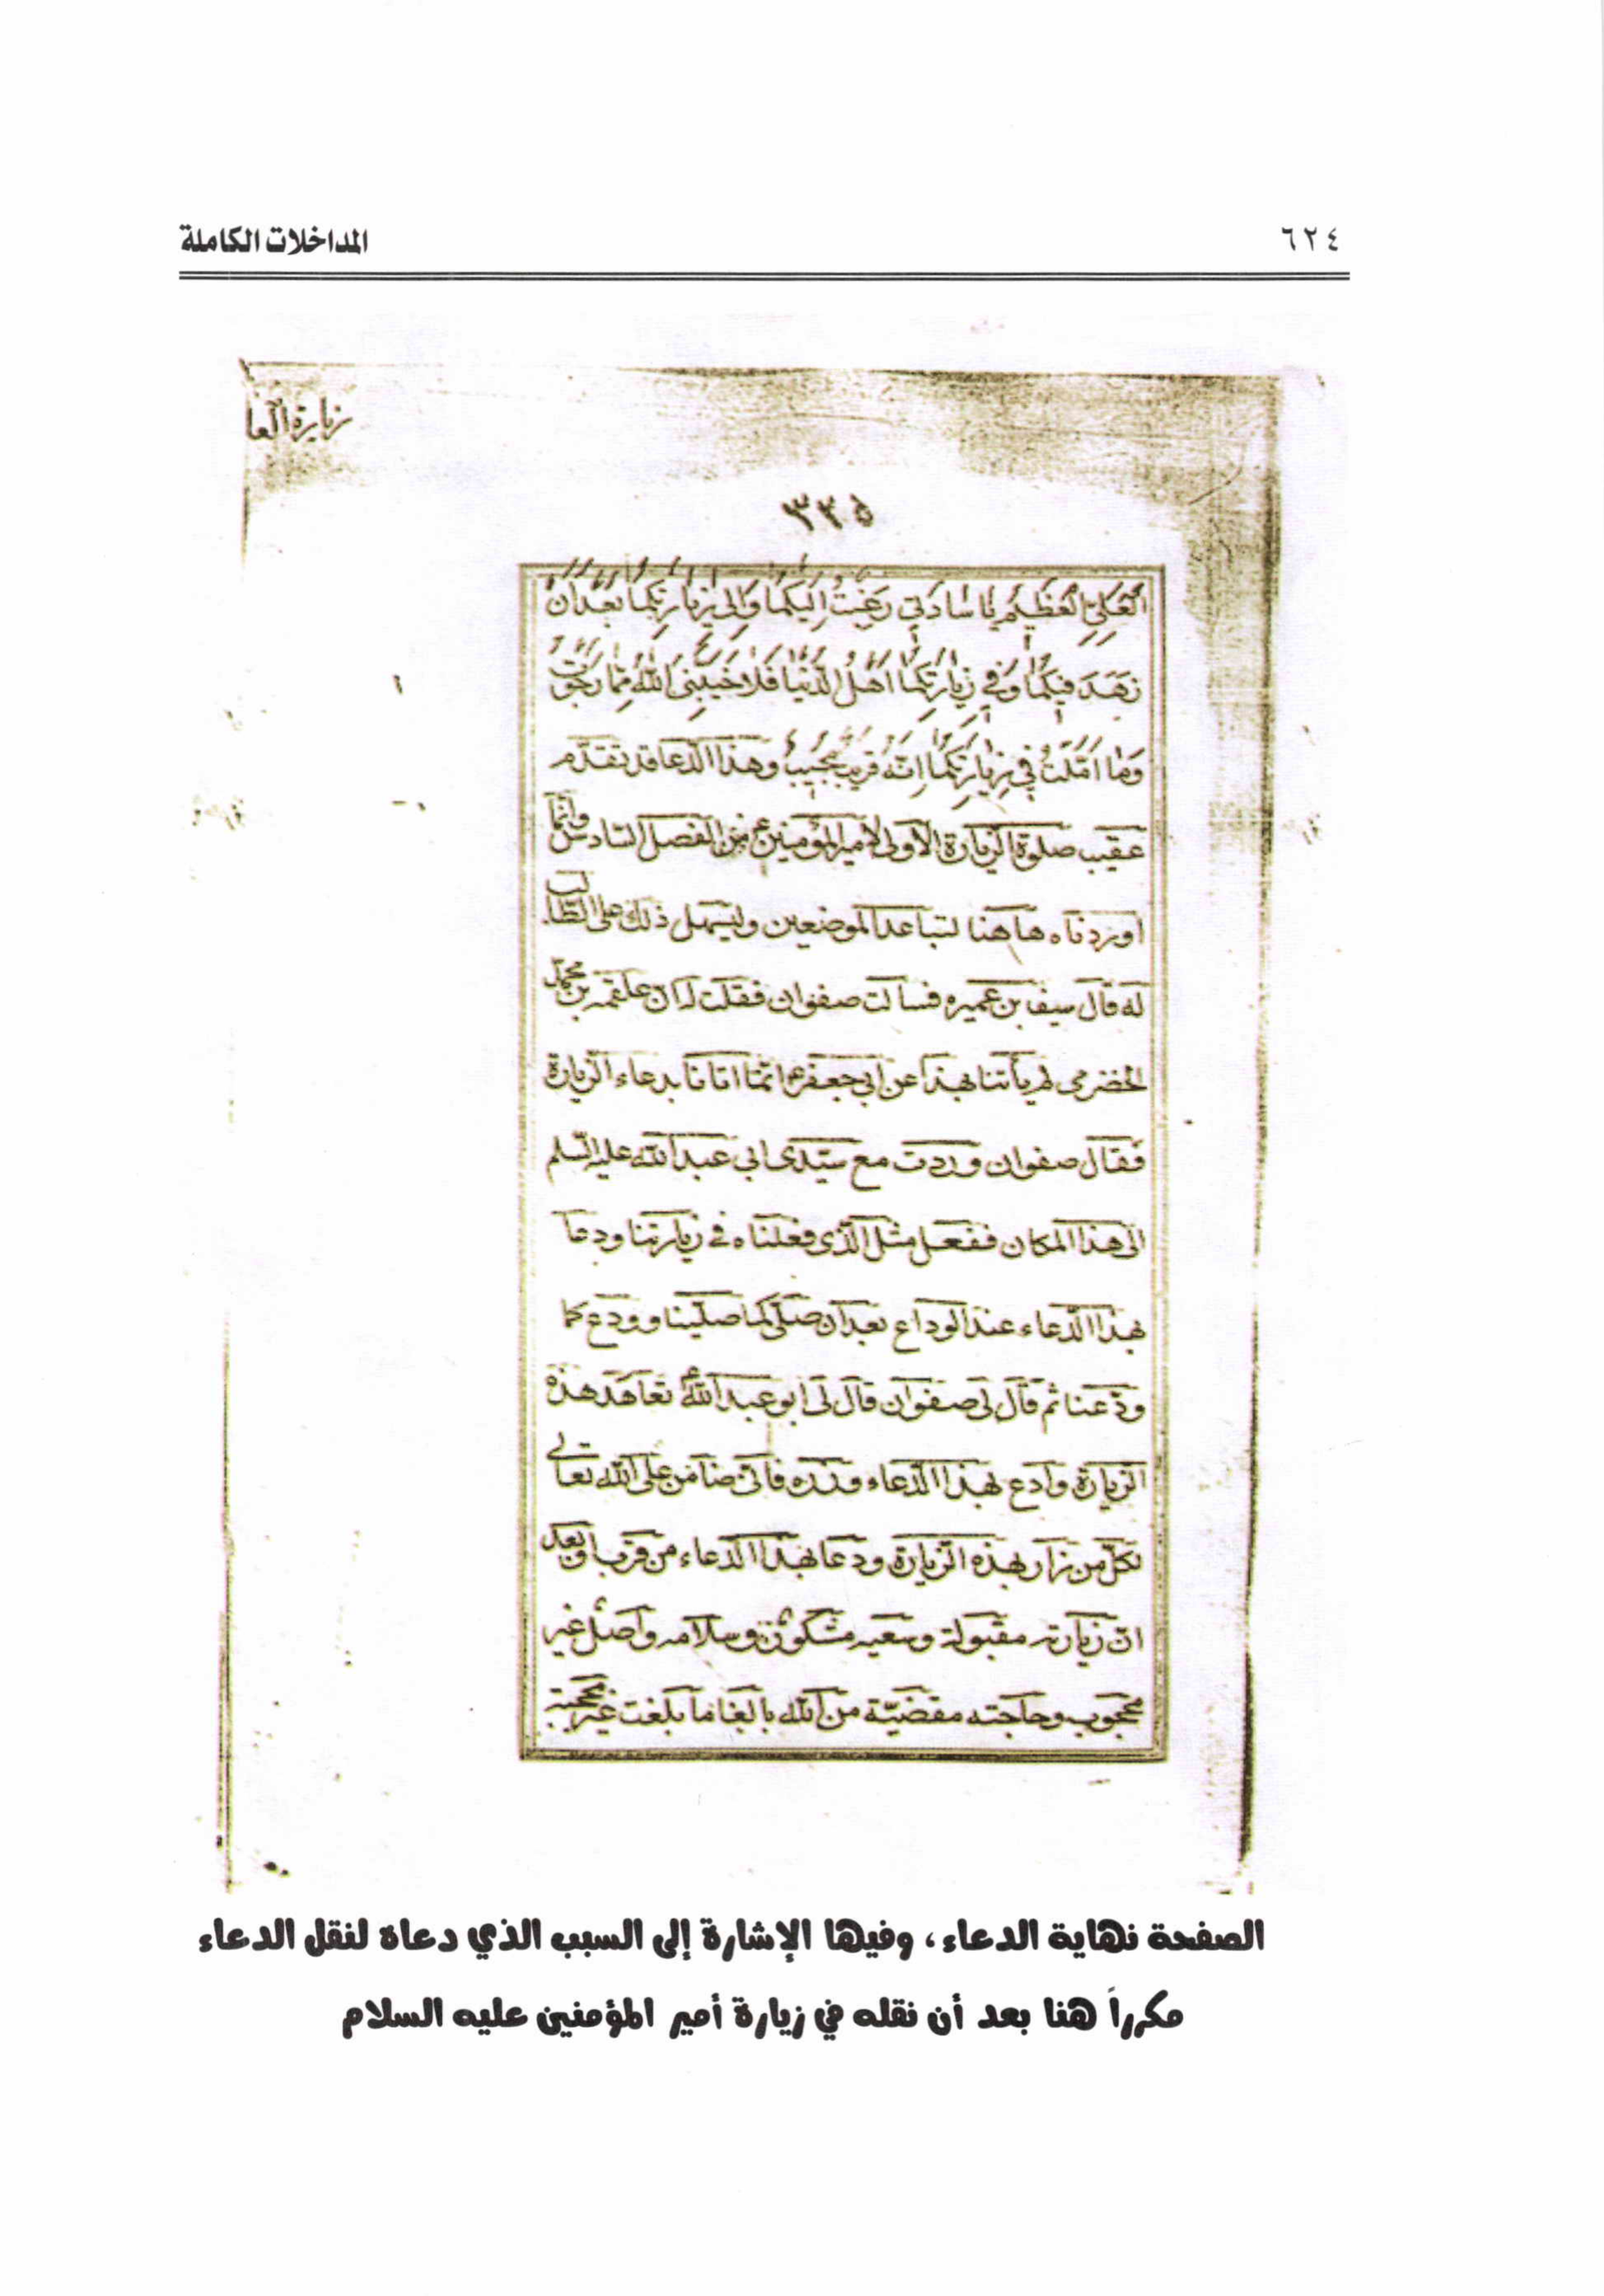 ٦٢٤
المداخلات الكاملة
زيارة العا
٣٣٥
الْعَلِيِّ الْعَظِيمِ يَا سَادَتِي رَغِبْتُ اِلَيْكُمَا وَاِلَى زِيَارَتِكُمَا بَعْدَ اَنْ
زَهَدَ فِيكُمَا وَفِي زِيَارَتِكُمَا اَهْلُ الدُّنْيَا فَلَا خَيَّبَنِيَ اللهُ مِمَّا رَجَوْتُ
وَمَا اَمَّلْتُ فِي زِيَارَتِكُمَا اِنَّهُ قَرِيبٌ مُجِيبٌ وهذا الدعا قد تقدّم
عقيب صلوة الزيارة الاولى لامير المؤمنين ع من الفصل السادس وانما
اوردناه هاهنا لتباعد الموضعين وليسهل ذلك على الطالب
له قال سيف بن عميره فسالت صفوان فقلت له ان علقمه بن محمد
الحضرمى لم يأتنا بهذا عن ابي جعفر ع انما اتانا بدعاء الزيارة
فقال صفوان وردت مع سيّدى ابي عبد الله عليه السلم
الى هذا المكان ففعل مثل الذى فعلناه في زيارتنا ودعا
بهذا الدعاء عند الوداع بعد ان صلى كما صلينا وودع كما
ودّعنا ثم قال لى صفوان قال لى ابو عبد الله ع تعاهد هذه
الزيارة وادع بهذا الدعاء وزره فانى ضامن على الله تعالى
لكل من زار بهذه الزيارة ودعا بهذا الدعاء من قرب او بعد
ان زيارته مقبولة وسعيه مشكور وسلامه واصل غير
محجوب وحاجته مقضيّة من الله بالغا ما بلغت غير
الصفحة نهاية الدعاء، وفيها الإشارة إلى السبب الذي دعاه لنقل الدعاء
مكرراً هنا بعد أن نقله في زيارة أمير المؤمنين عليه السلام